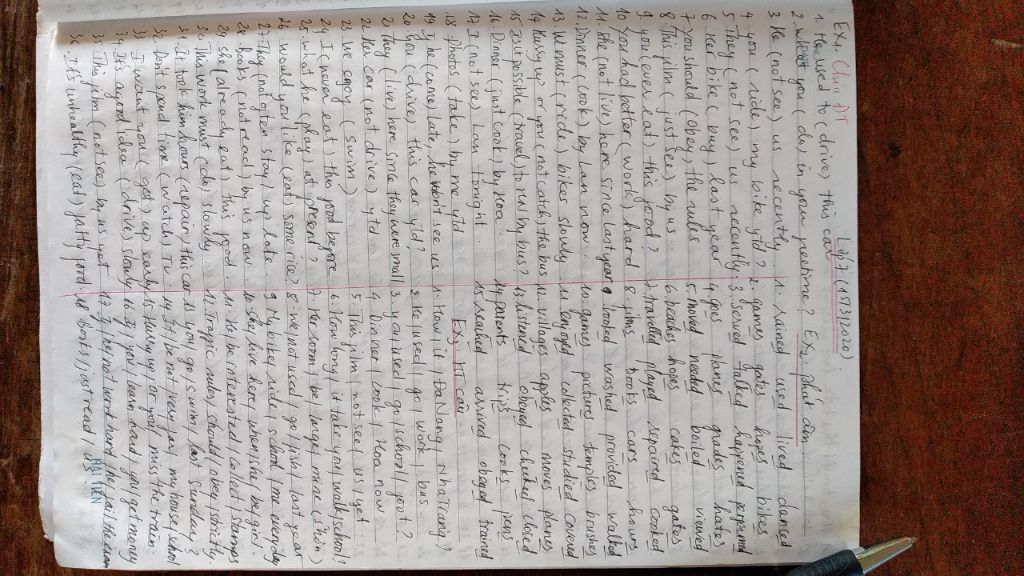 Ex1 Chia ĐT
Lớp 7 (15/3/2020)
1. He used to (drive) this car
2. What you (do) in your freetime?
3. He (not see) us recently
4. you (ride) my bike ytd?
5. They (not see) us recently
6. bike (buy) last year
7. you should (obey) the rules
8. This film (just see) by us
9. you ever eat) this food?
10. You had better (work) hard
11. She (not live) here since last year
12. Dinner (cook) by Lan now
13. We must (ride) bikes slowly
14. Hurry up or you (not catch) the bus
15. Is it possible (travel) to by bus?
16. Dinner (just cook) by Hoa.
17. I (not see) Lan tonight.
18. Photos (take) by me ytd
19. If he (come) late, he won't see us
20. You (drive) this car ytd?
21. They (live) here since they were small
22. Her car (not drive) ytd
23. We enjoy (swim)
24. I (never eat) this food before
25. What he (play) at present?
26. Would you like (eat) some rice?
27. They (not often stay) up late
28. books (not read) by us now
29. she (already eat) this food
30. This work must (do) slowly
31. It took him hours (repair) this car
32. Don't spend time (watch) TV
33. I want you (get) up early
34. It's a good idea (drive) slowly
35. This film (not see) by us yet
36. It is unhealthy (eat) fatty food
Ex2 phát âm
1. rained used lived danced
2. games gates hopes bikes
3. served talked happened prepared
4. goes planes grades hates
5. moved needed boiled viewed
6. beaches hopes cakes gates
7. travelled played repaired cooked
8. films books cars hours
9. looked washed provided walked
10. games pictures temples brushes
11. enjoyed collected studied covered
12. villages apples moves planes
13. listened obeyed checked cleaned
14. parents trips cooks pays
15. reached arrived obeyed turned
Ex3 HT câu
1. How / it / Da Nang / Nha Trang?
2. He / used / go / work / bus
3. you / used / go / school / foot?
4. Dinner / cook / Hoa now
5. This film / not see / us / yet
6. How long / it take you / walk school?
7. Her room / be / larger / mine (2 cách)
8. I've / not used / go / / last year
9. My bike / ride / school / me everyday
10. she / live here / when / she / be / girl
11. he / be interested / collect / stamps
12. Traffic rules / should / obey / strictly.
13. you / go / swim / last sunday?
14. It / be not very far / my house / school
15. Hurry up or you'll miss the train
16. If / you / learn hard / you / get money
17. If / they not work hard / they / fail the exam
18. books / just read / us